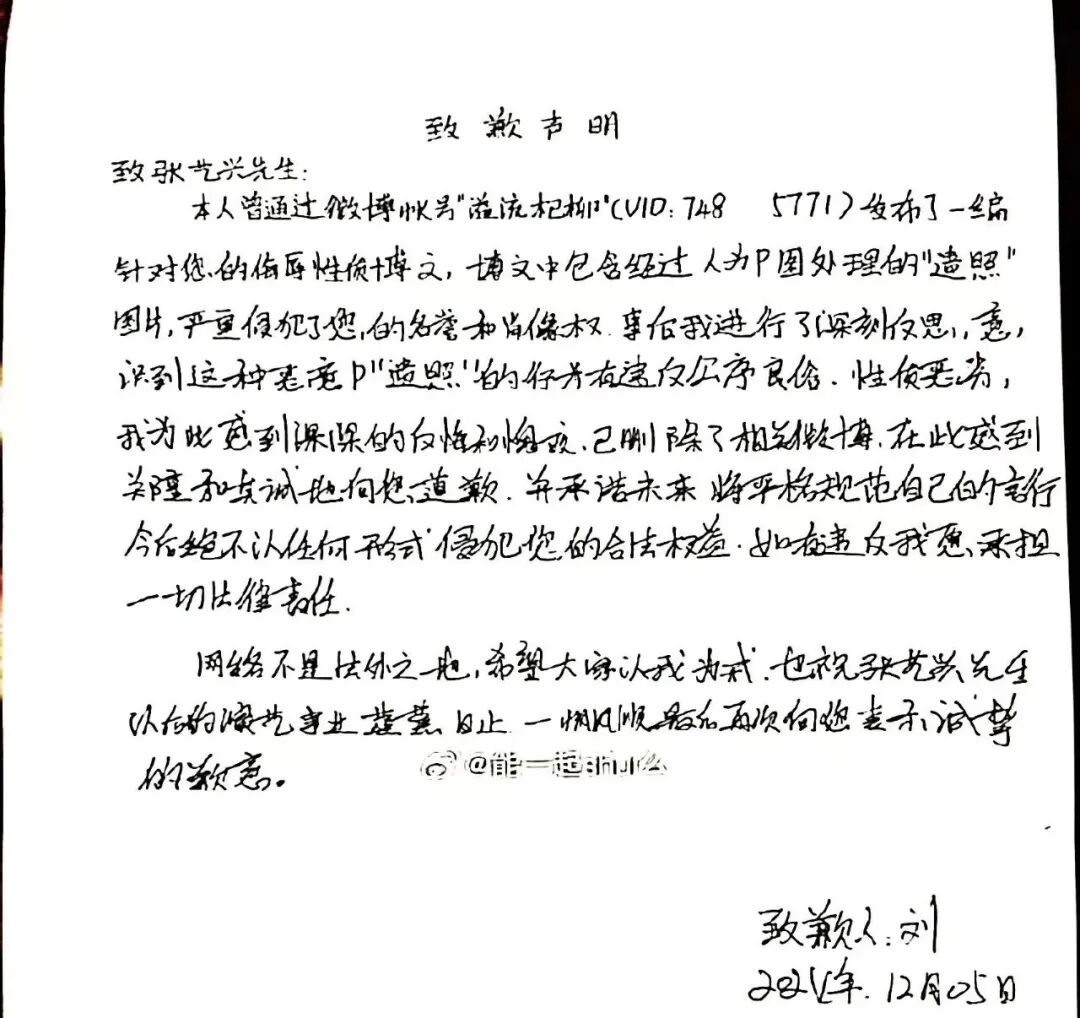 致歉声明
致张艺兴先生:
本人曾通过微博帐号"溢流杞柳"(VID:748 5771)发布了一编
针对您的侮辱性质博文,博文中包含经过人为P图处理的"遗照"
图片,严重侵犯了您的名誉和肖像权.事后我进行了深刻反思,意
识到这种恶意P"遗照"的行为有违反公序良俗.性质恶劣,
我为此感到深深的反悔和悔改,已删除了相关微博.在此感到
郑重和真诚地向您道歉.并承诺未来将严格规范自己的言行
今后绝不以任何形式侵犯您的合法权益.如有违反我愿承担
一切法律责任.
网络不是法外之地,希望大家以我为戒.也祝张艺兴先生
以后的演艺事业蒸蒸日上 一帆风顺最后再次向您表示诚挚
的歉意。
@能一起
致歉人:刘
年.12月05日